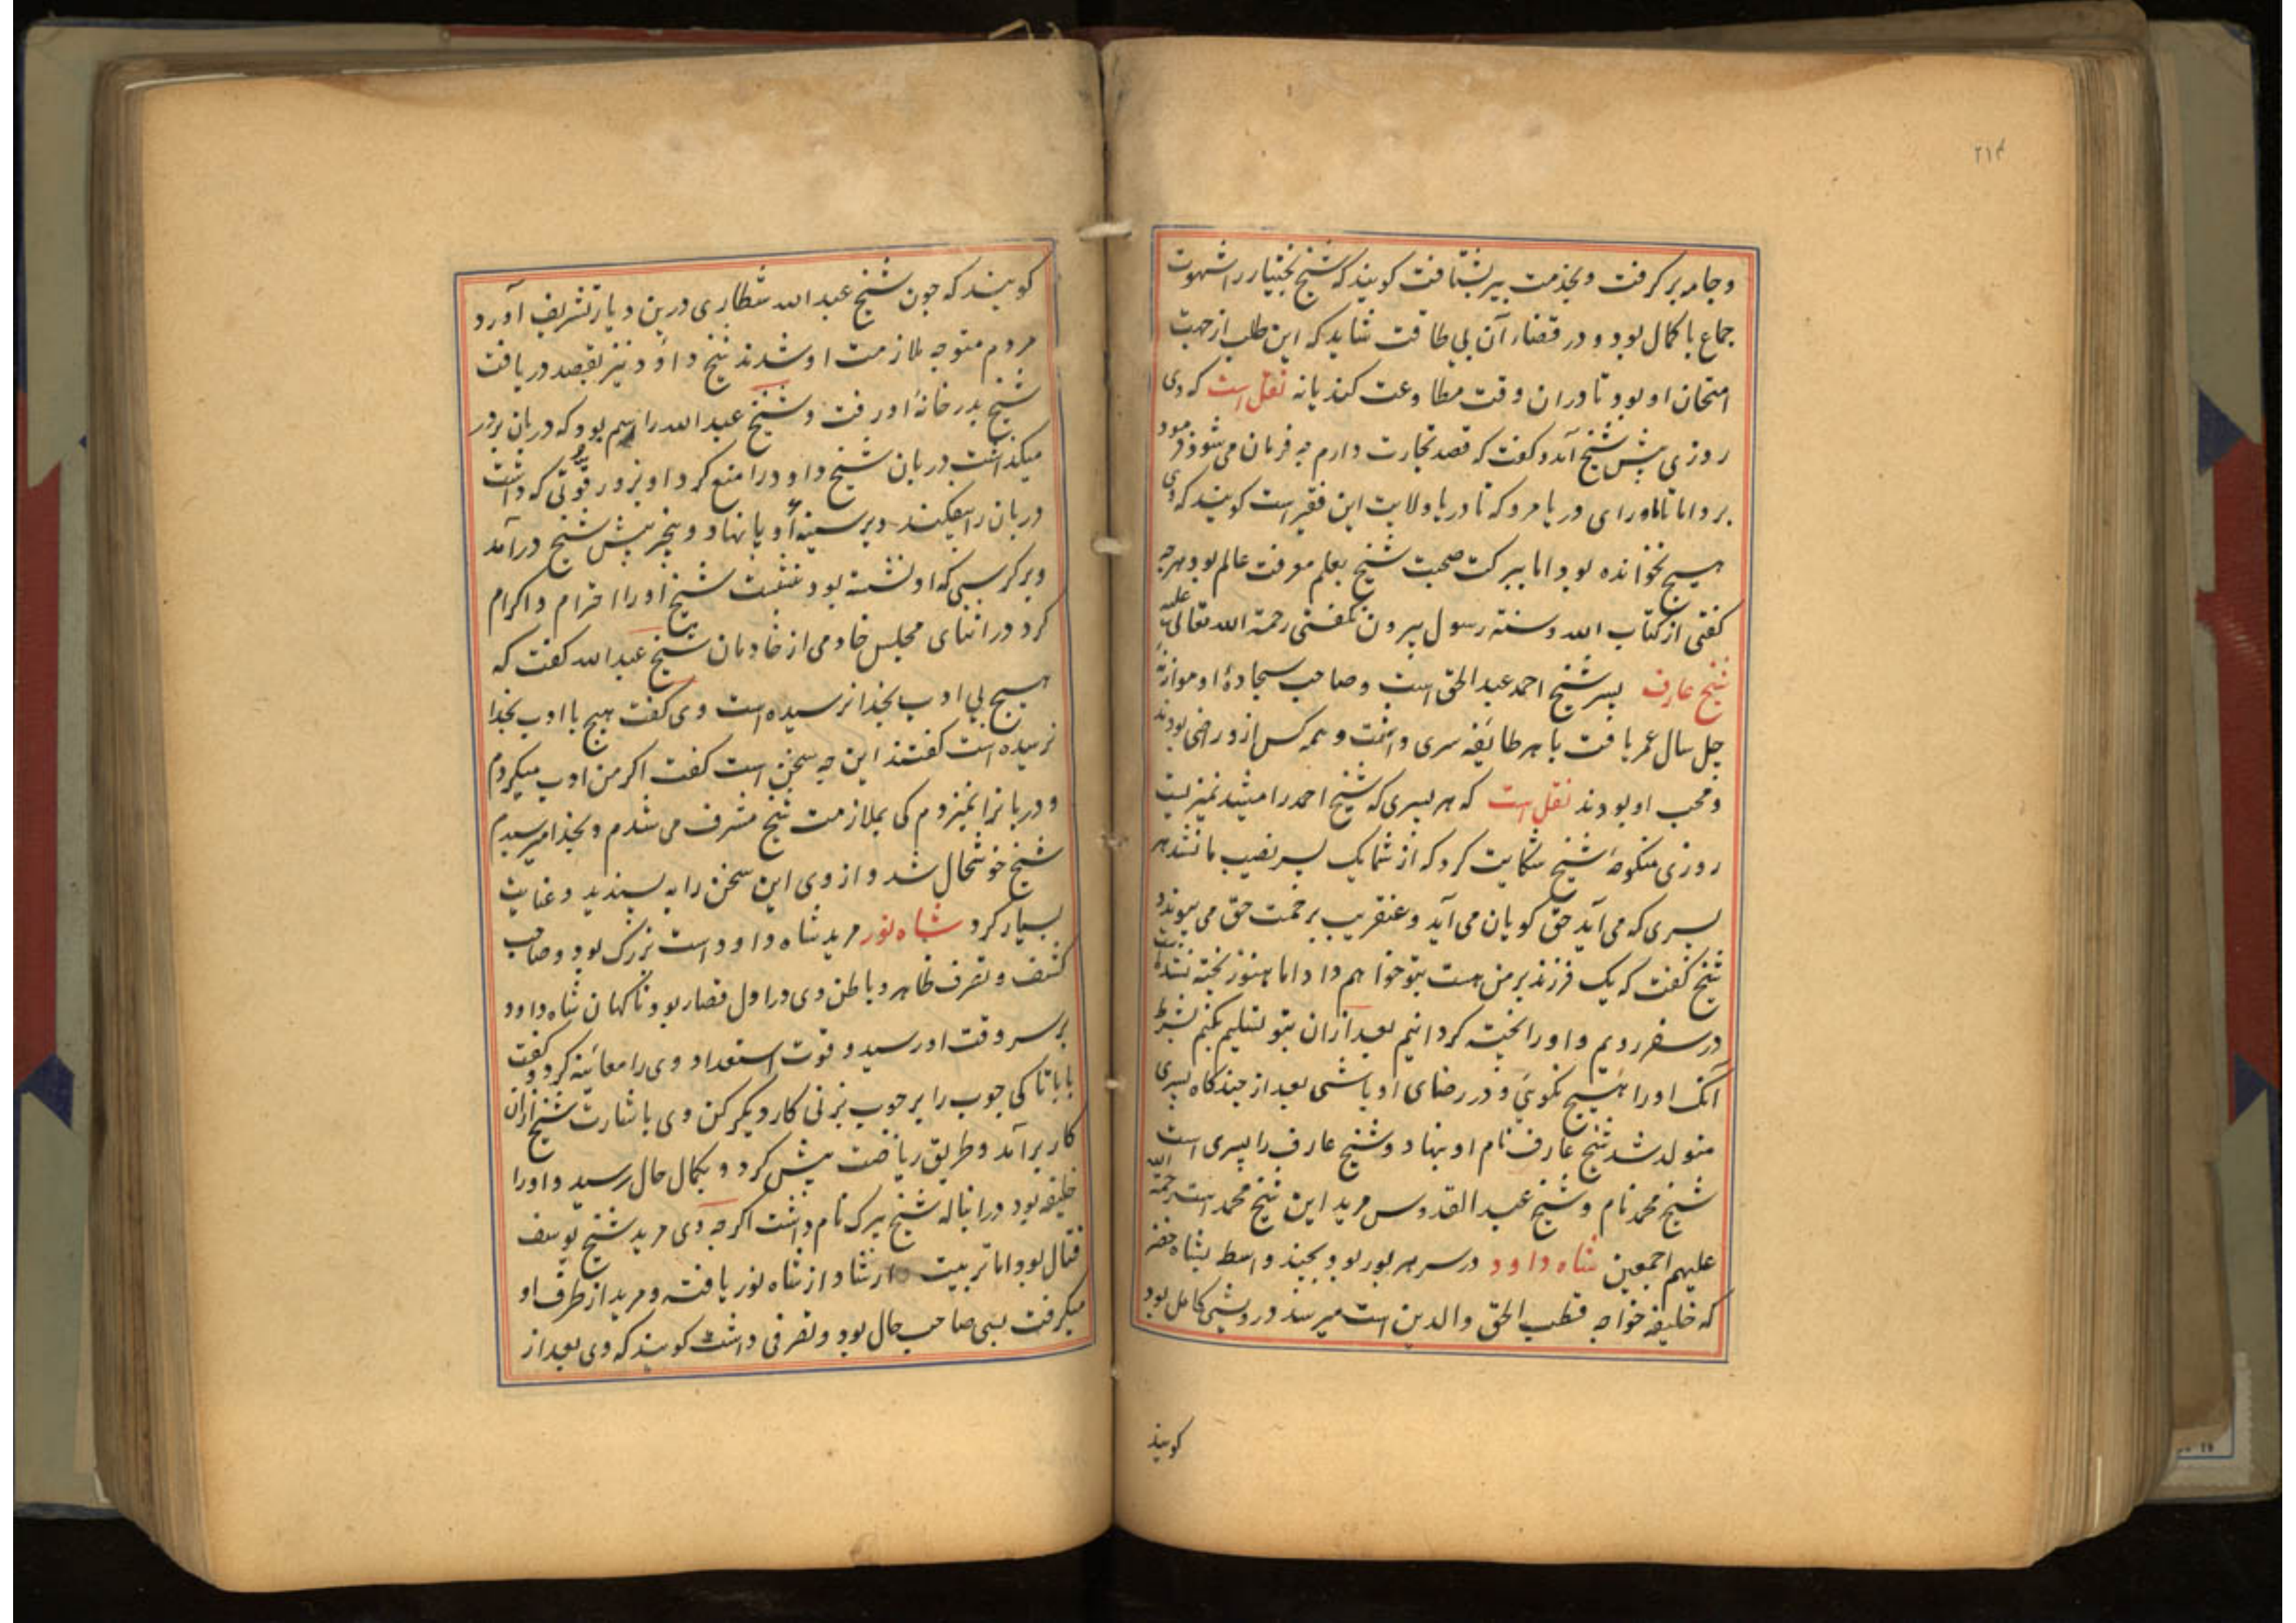 ۲۱۴
وجامه بر گرفت و بخدمت پیر بشتافت گویند که شیخ بختیار را شهوت
جماع با کمال بود و در قضاء آن بی طاقت شاید که این طلب از جهت
امتحان او بود تا در ان وقت مطاوعت کند یا نه نقل است که وی
روزی پیش شیخ آمد و گفت که قصد تجارت دارم چه فرمان می شود فرمود
برو اما تا ماورای دریا مرو که تا دریا ولایت این فقیر است گویند که وی
هیچ نخوانده بود اما ببرکت صحبت شیخ بعلم معرفت عالم بود هرچه
گفتی از کتاب الله وسنته رسول بیرون نگفتی رحمة الله تعالی علیه
شیخ عارف پسر شیخ احمد عبد الحق است و صاحب سجادهٔ او موازنهٔ
چل سال عمر یافت با هر طایفه سری داشت و همه کس ازو راضی بودند
و محب او بودند نقل است که هر پسری که شیخ احمد را میشد نمیزیست
روزی منکوحهٔ شیخ شکایت کرد که از شما یک پسر نصیب ما نشد هر
پسری که می آید حق گویان می آید و عنقریب برحمت حق می پیوندد
شیخ گفت که یک فرزند بر من هست بتو خواهم داد اما هنوز پخته نشده است
در سفر رویم و او را پخته گردانیم بعد ازان بتو تسلیم بکنم بشرط
آنک او را هیچ نگویی و در رضای او باشی بعد از چند گاه پسری
متولد شد شیخ عارف نام او بنهاد و شیخ عارف را پسری است
شیخ محمد نام وشیخ عبد القدوس مرید این شیخ محمد است رحمة الله
علیهم اجمعین شاه داود در سرهرپور بود بچند واسط بشاه خضر
که خلیفه خواجه قطب الحق والدین است میرسد درویشی کامل بود
گویند
گویند که چون شیخ عبد الله شطاری درین دیار تشریف آورد
مردم متوجه ملازمت او شدند شیخ داؤد نیز بقصد دریافت
شیخ بدر خانهٔ او رفت و شیخ عبد الله را رسم بود که دربان بر در
میگذاشت دربان شیخ داود را منع کرد او بزور و قوتی که داشت
دربان را بیفکند و بر سینهٔ او پا نهاد و بیخبر پیش شیخ درآمد
و بر کرسی که او نشسته بود بنشست شیخ او را احترام و اکرام
کرد در اثنای مجلس خادمی از خادمان شیخ عبد الله گفت که
هیچ بی ادب بخدا نرسیده است وی گفت هیچ با ادب بخدا
نرسیده است گفتند این چه سخن است گفت اگر من ادب میکردم
و دربانرا نمیزدم کی بملازمت شیخ مشرف می شدم و بخدا میرسیدم
شیخ خوشحال شد و از وی این سخن را به پسندید و عنایت
بسیار کرد شاه نور مرید شاه داود است بزرگ بود و صاحب
کشف و تصرف ظاهر و باطن وی در اول قصار بود ناگهان شاه داود
بر سر وقت او رسید و قوت استعداد وی را معائنه کرد و گفت
بابا تا کی چوب را بر چوب بزنی کار دیگر کن وی باشارت شیخ ازان
کار برآمد و طریق ریاضت پیش کرد و بکمال حال رسید و او را
خلیفه بود در انباله شیخ پیرک نام داشت اگرچه وی مرید شیخ یوسف
قتال بود اما تربیت و ارشاد از شاه نور یافته و مرید از طرف او
میگرفت بسی صاحب حال بود و تصرفی داشت گویند که وی بعد از